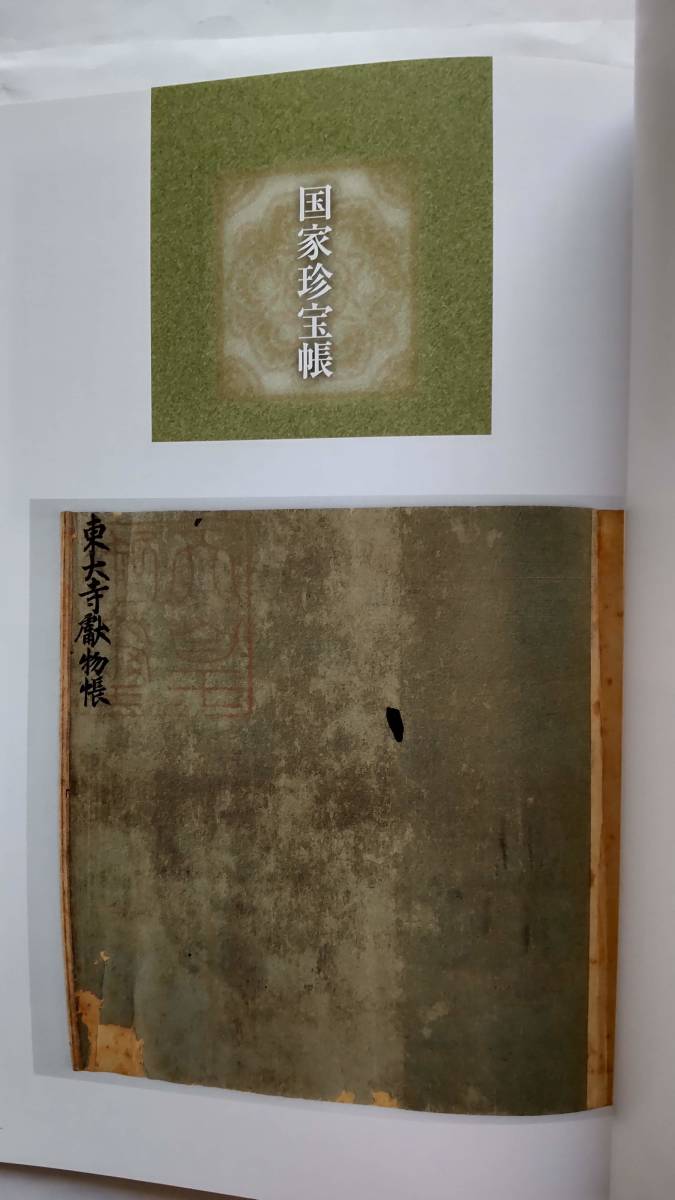 国家珍宝帳
東大寺獻物帳